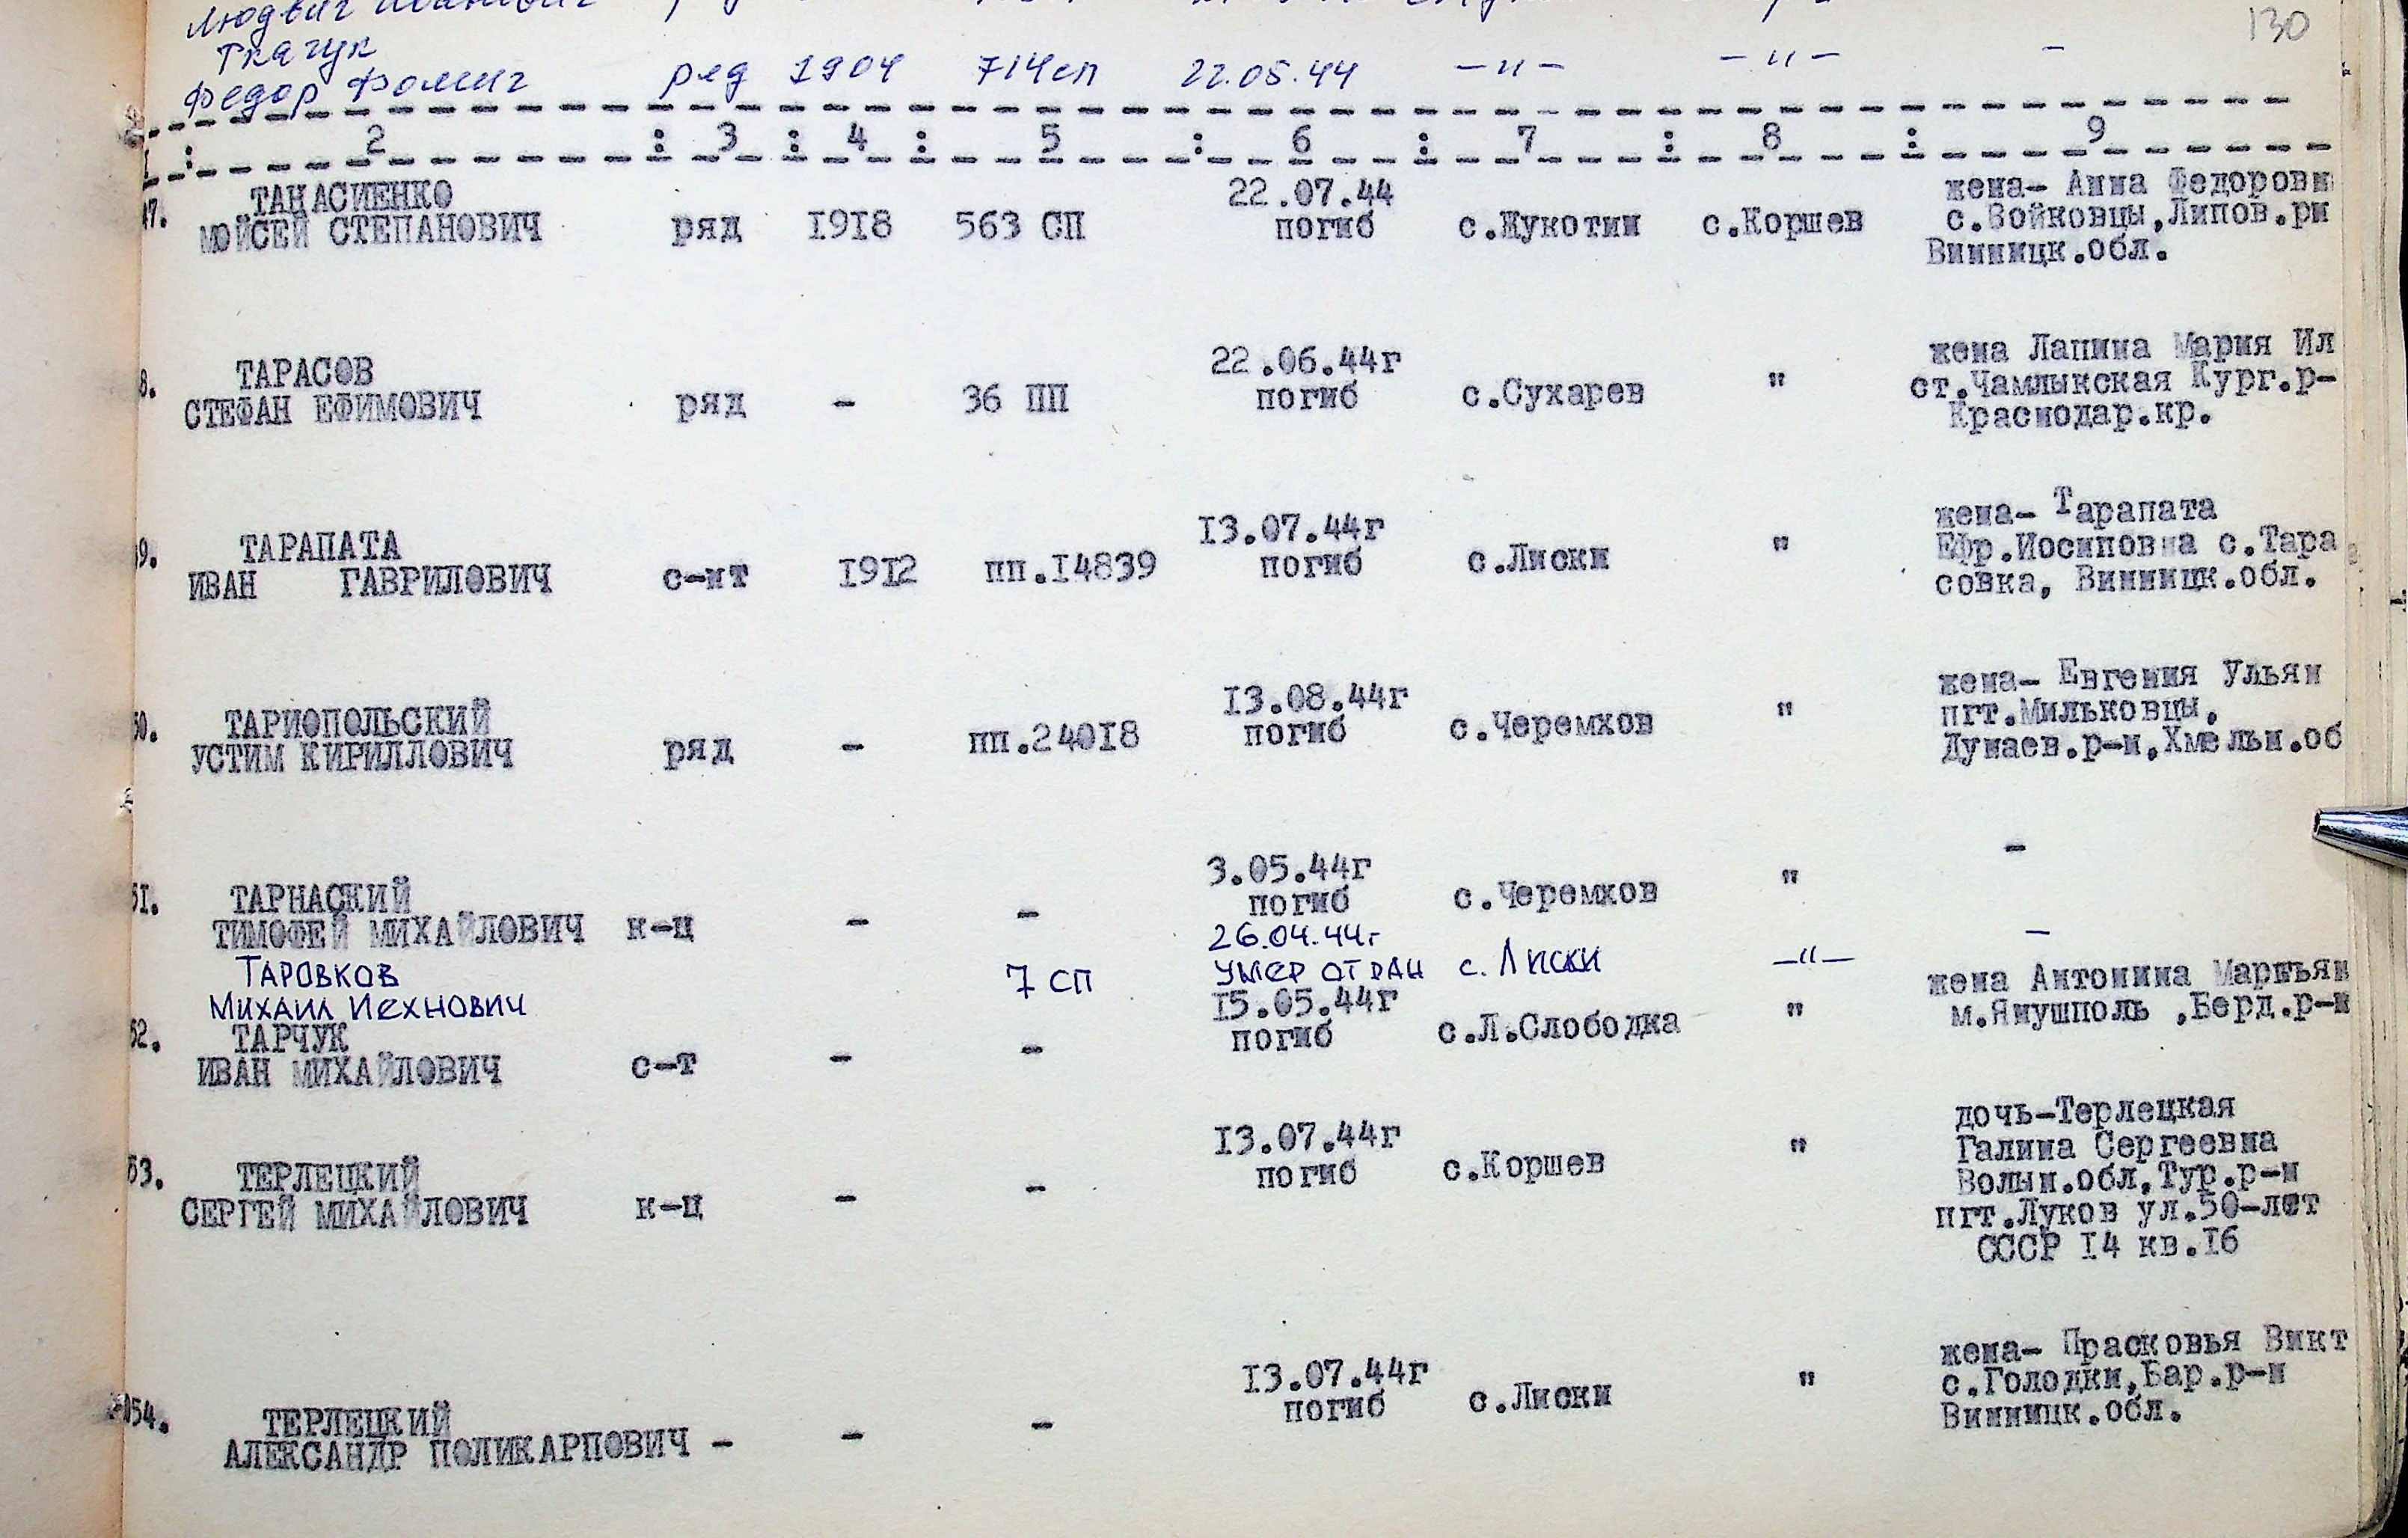 Людвиг
130
Ткачук
Федор Фомич ряд 1904 714сп 22.05.44 —"— —"— —
I : 2 : 3 : 4 : 5 : 6 : 7 : 8 : 9
47. ТАНАСИЕНКО
МОЙСЕЙ СТЕПАНОВИЧ ряд 1918 563 СП 22.07.44
погиб с.Жукотин с.Коршев жена- Анна Федоровн
с.Войковцы,Липов.рн
Винницк.обл.
8. ТАРАСОВ
СТЕФАН ЕФИМОВИЧ ряд - 36 ПП 22.06.44г
погиб с.Сухарев " жена Лапина Мария Ил
ст.Чамлыкская Кург.р-
Краснодар.кр.
9. ТАРАПАТА
ИВАН ГАВРИЛОВИЧ с-нт 1912 пп.14839 13.07.44г
погиб с.Лиски " жена- Тарапата
Ефр.Иосиповна с.Тара
совка, Винницк.обл.
50. ТАРНОПОЛЬСКИЙ
УСТИМ КИРИЛЛОВИЧ ряд - пп.24018 13.08.44г
погиб с.Черемхов " жена- Евгения Ульян
пгт.Мильковцы,
Дунаев.р-н,Хмельн.об
51. ТАРНАСКИЙ
ТИМОФЕЙ МИХАЙЛОВИЧ к-ц - - 3.05.44г
погиб с.Черемхов " -
ТАРОВКОВ
МИХАИЛ ИЕХНОВИЧ 7 СП 26.04.44г
УМЕР ОТ РАН с. ЛИСКИ —"— —
52. ТАРЧУК
ИВАН МИХАЙЛОВИЧ с-т - - 15.05.44г
погиб с.Л.Слободка " жена Антонина Марпьян
м.Янушполь ,Берд.р-н
53. ТЕРЛЕЦКИЙ
СЕРГЕЙ МИХАЙЛОВИЧ к-ц - - 13.07.44г
погиб с.Коршев " дочь-Терлецкая
Галина Сергеевна
Волын.обл,Тур.р-н
пгт.Луков ул.50-лет
СССР 14 кв.16
054. ТЕРЛЕЦКИЙ
АЛЕКСАНДР ПОЛИКАРПОВИЧ - - - 13.07.44г
погиб с.Лиски " жена- Прасковья Викт
с.Голодки,Бар.р-н
Винницк.обл.